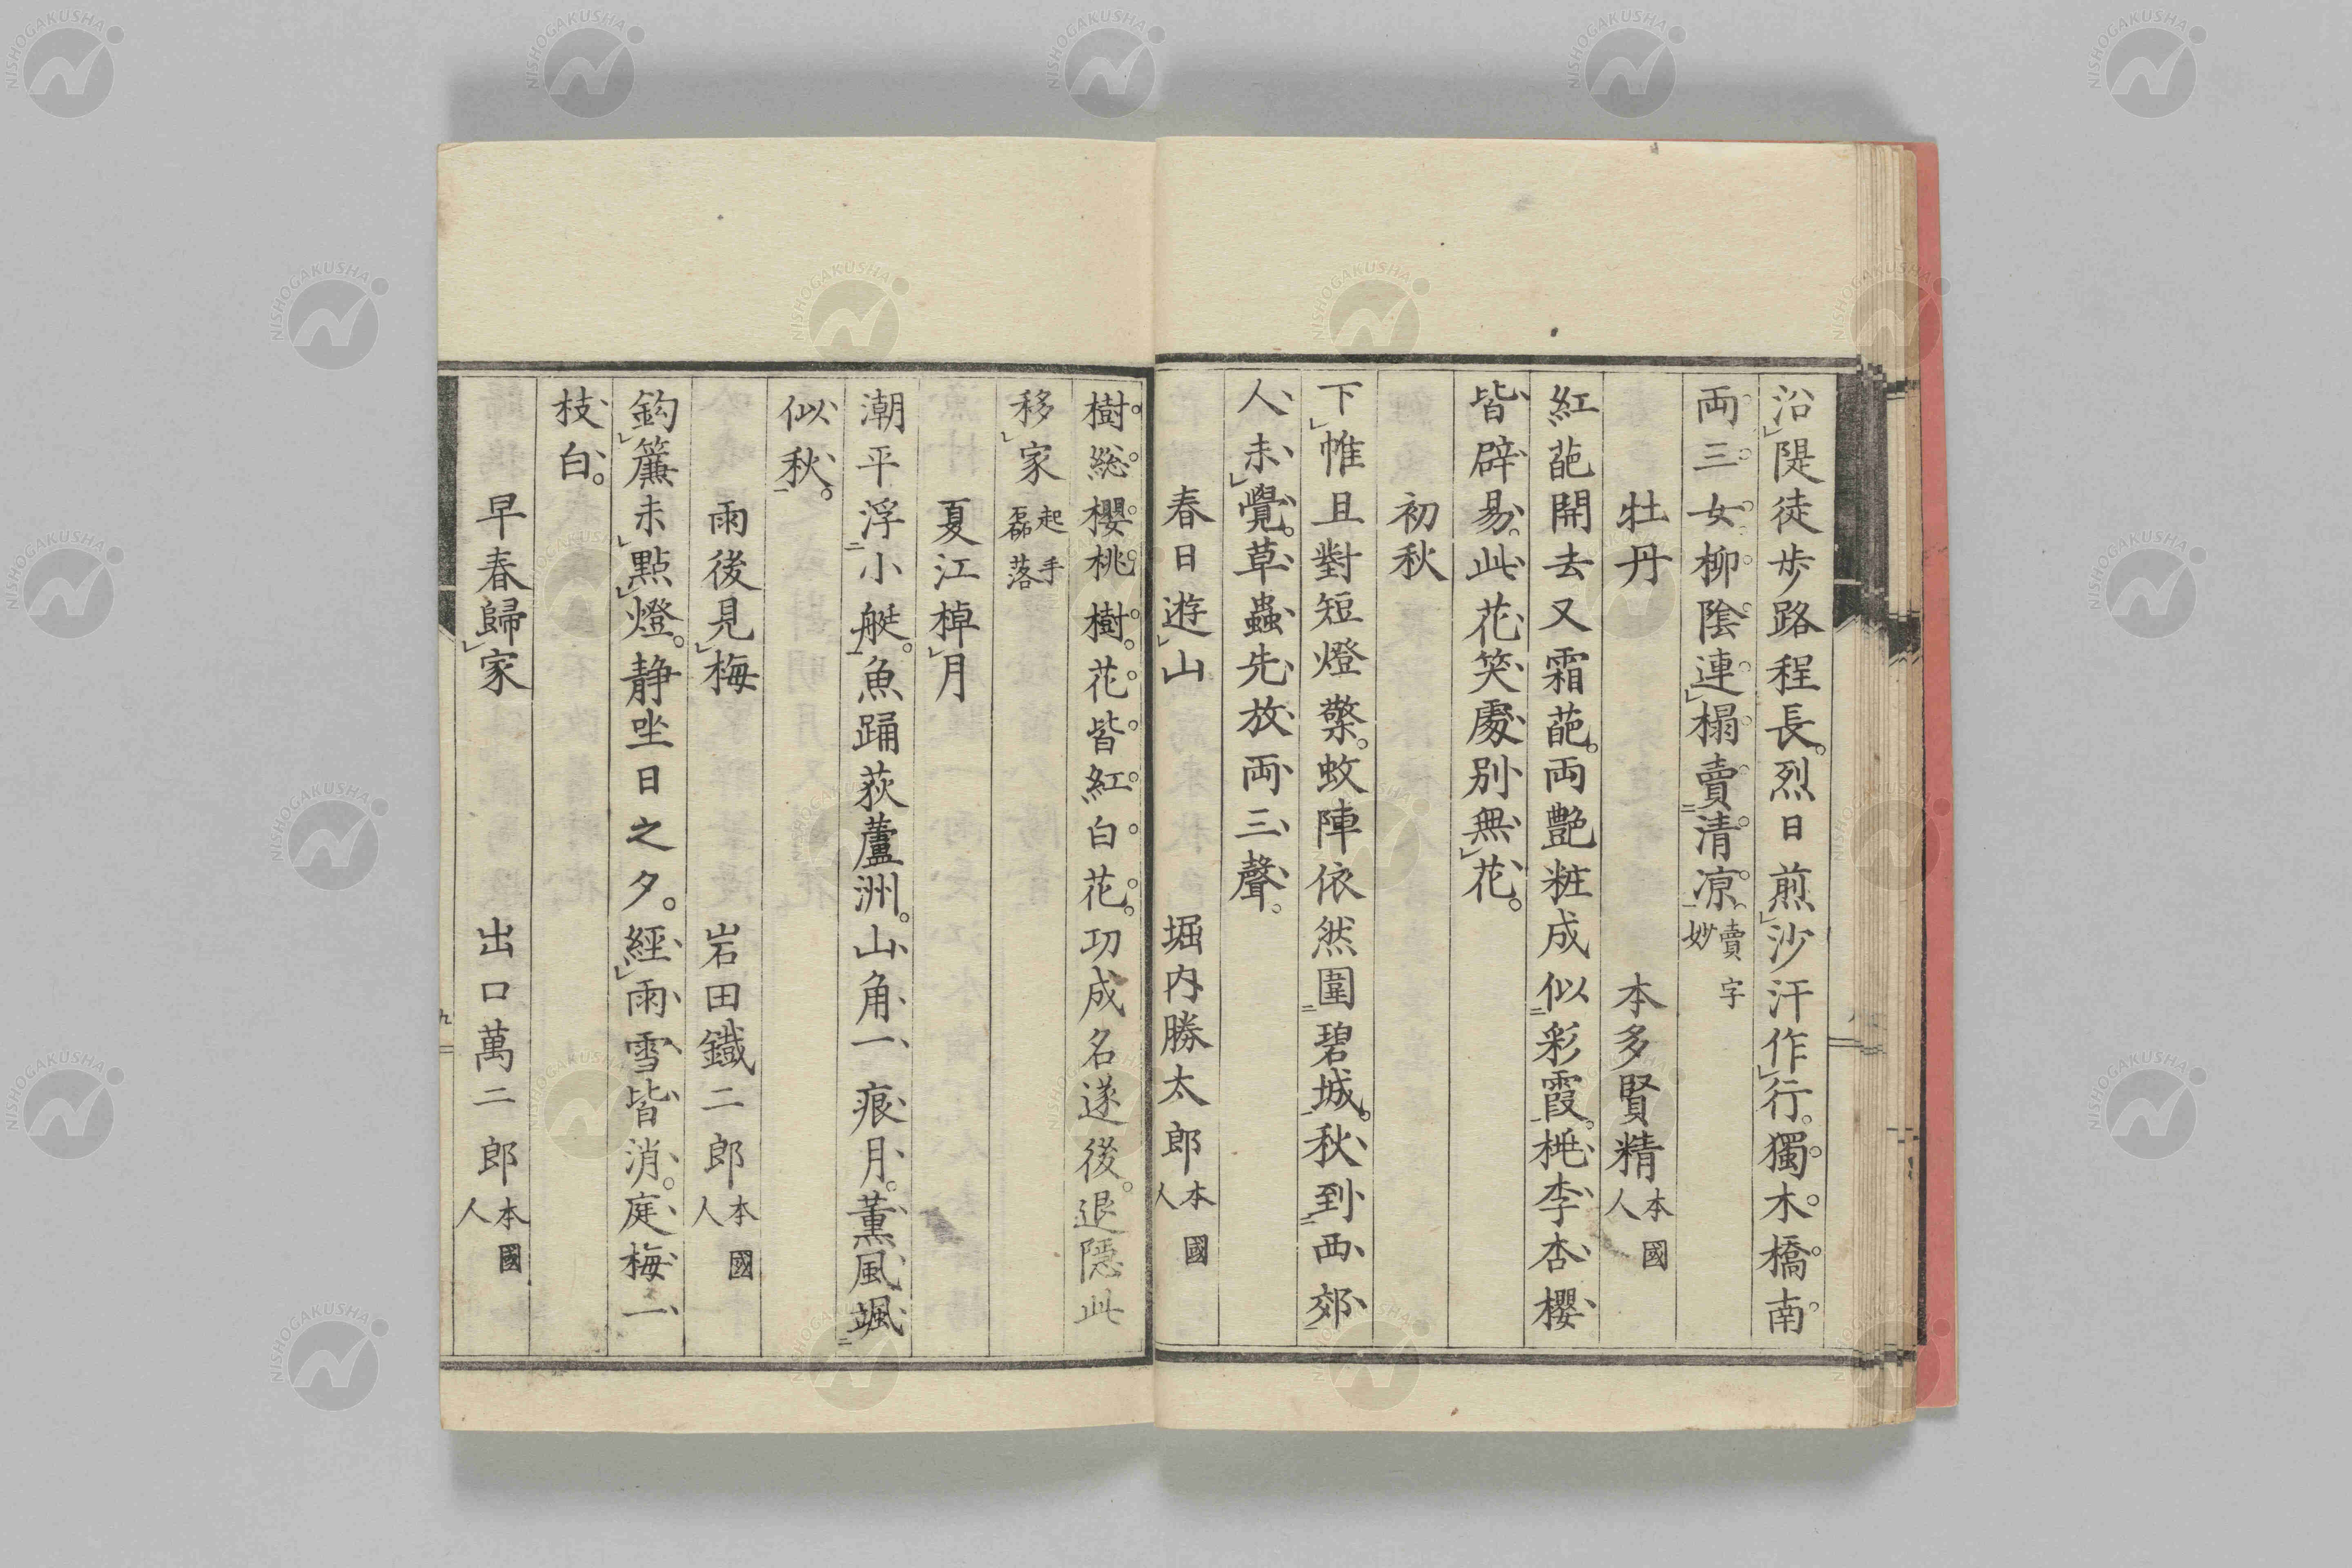 沿隄徒歩路程長。烈日煎沙汗作行。獨木橋南
両三女。柳陰連榻賣清凉。賣字妙
牡丹　本多賢精本國人
紅葩開去又霜葩。両艶粧成似彩霞。桃李杏櫻
皆辟易。此花笑處別無花。
初秋
下帷且對短燈檠。蚊陣依然圍碧城。秋到西郊
人未覺。草蟲先放両三聲。
春日遊山　堀内勝太郎本國人
樹總櫻桃樹。花皆紅白花。功成名遂後。退隱此
移家　起手磊落
夏江棹月
潮平浮小艇。魚踊荻蘆洲。山角一痕月。薫風颯
似秋。
雨後見梅　岩田鐵二郎本國人
鈎簾未點燈。静坐日之夕。經雨雪皆消。庭梅一
枝白。
早春歸家　出口萬二郎本國人
九
NISHOGAKUSHA